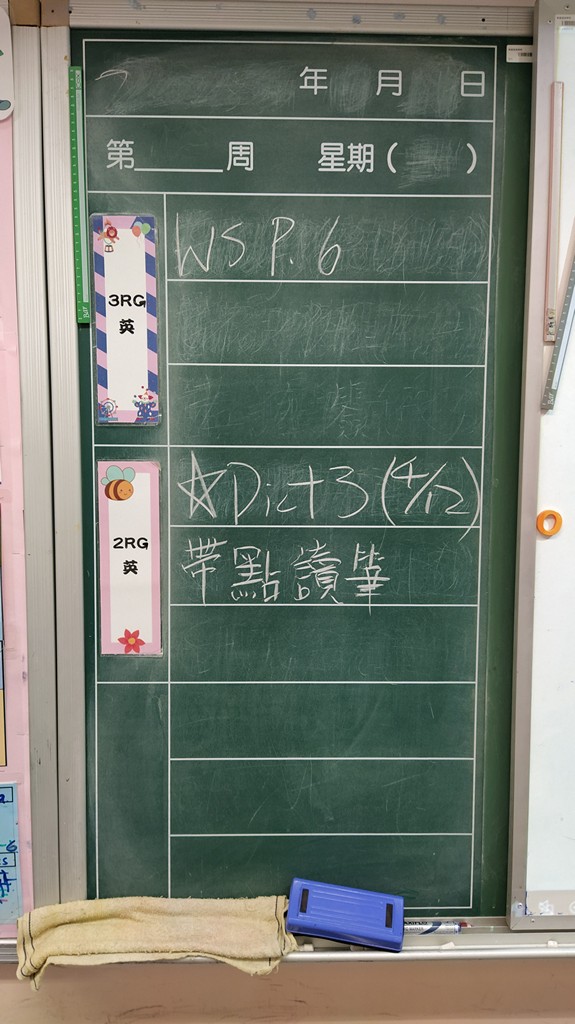 年 月 日
第______周 星期( )
3RG
英
WS P. 6
2RG
英
☆Dict 3 (4/12)
帶點讀筆